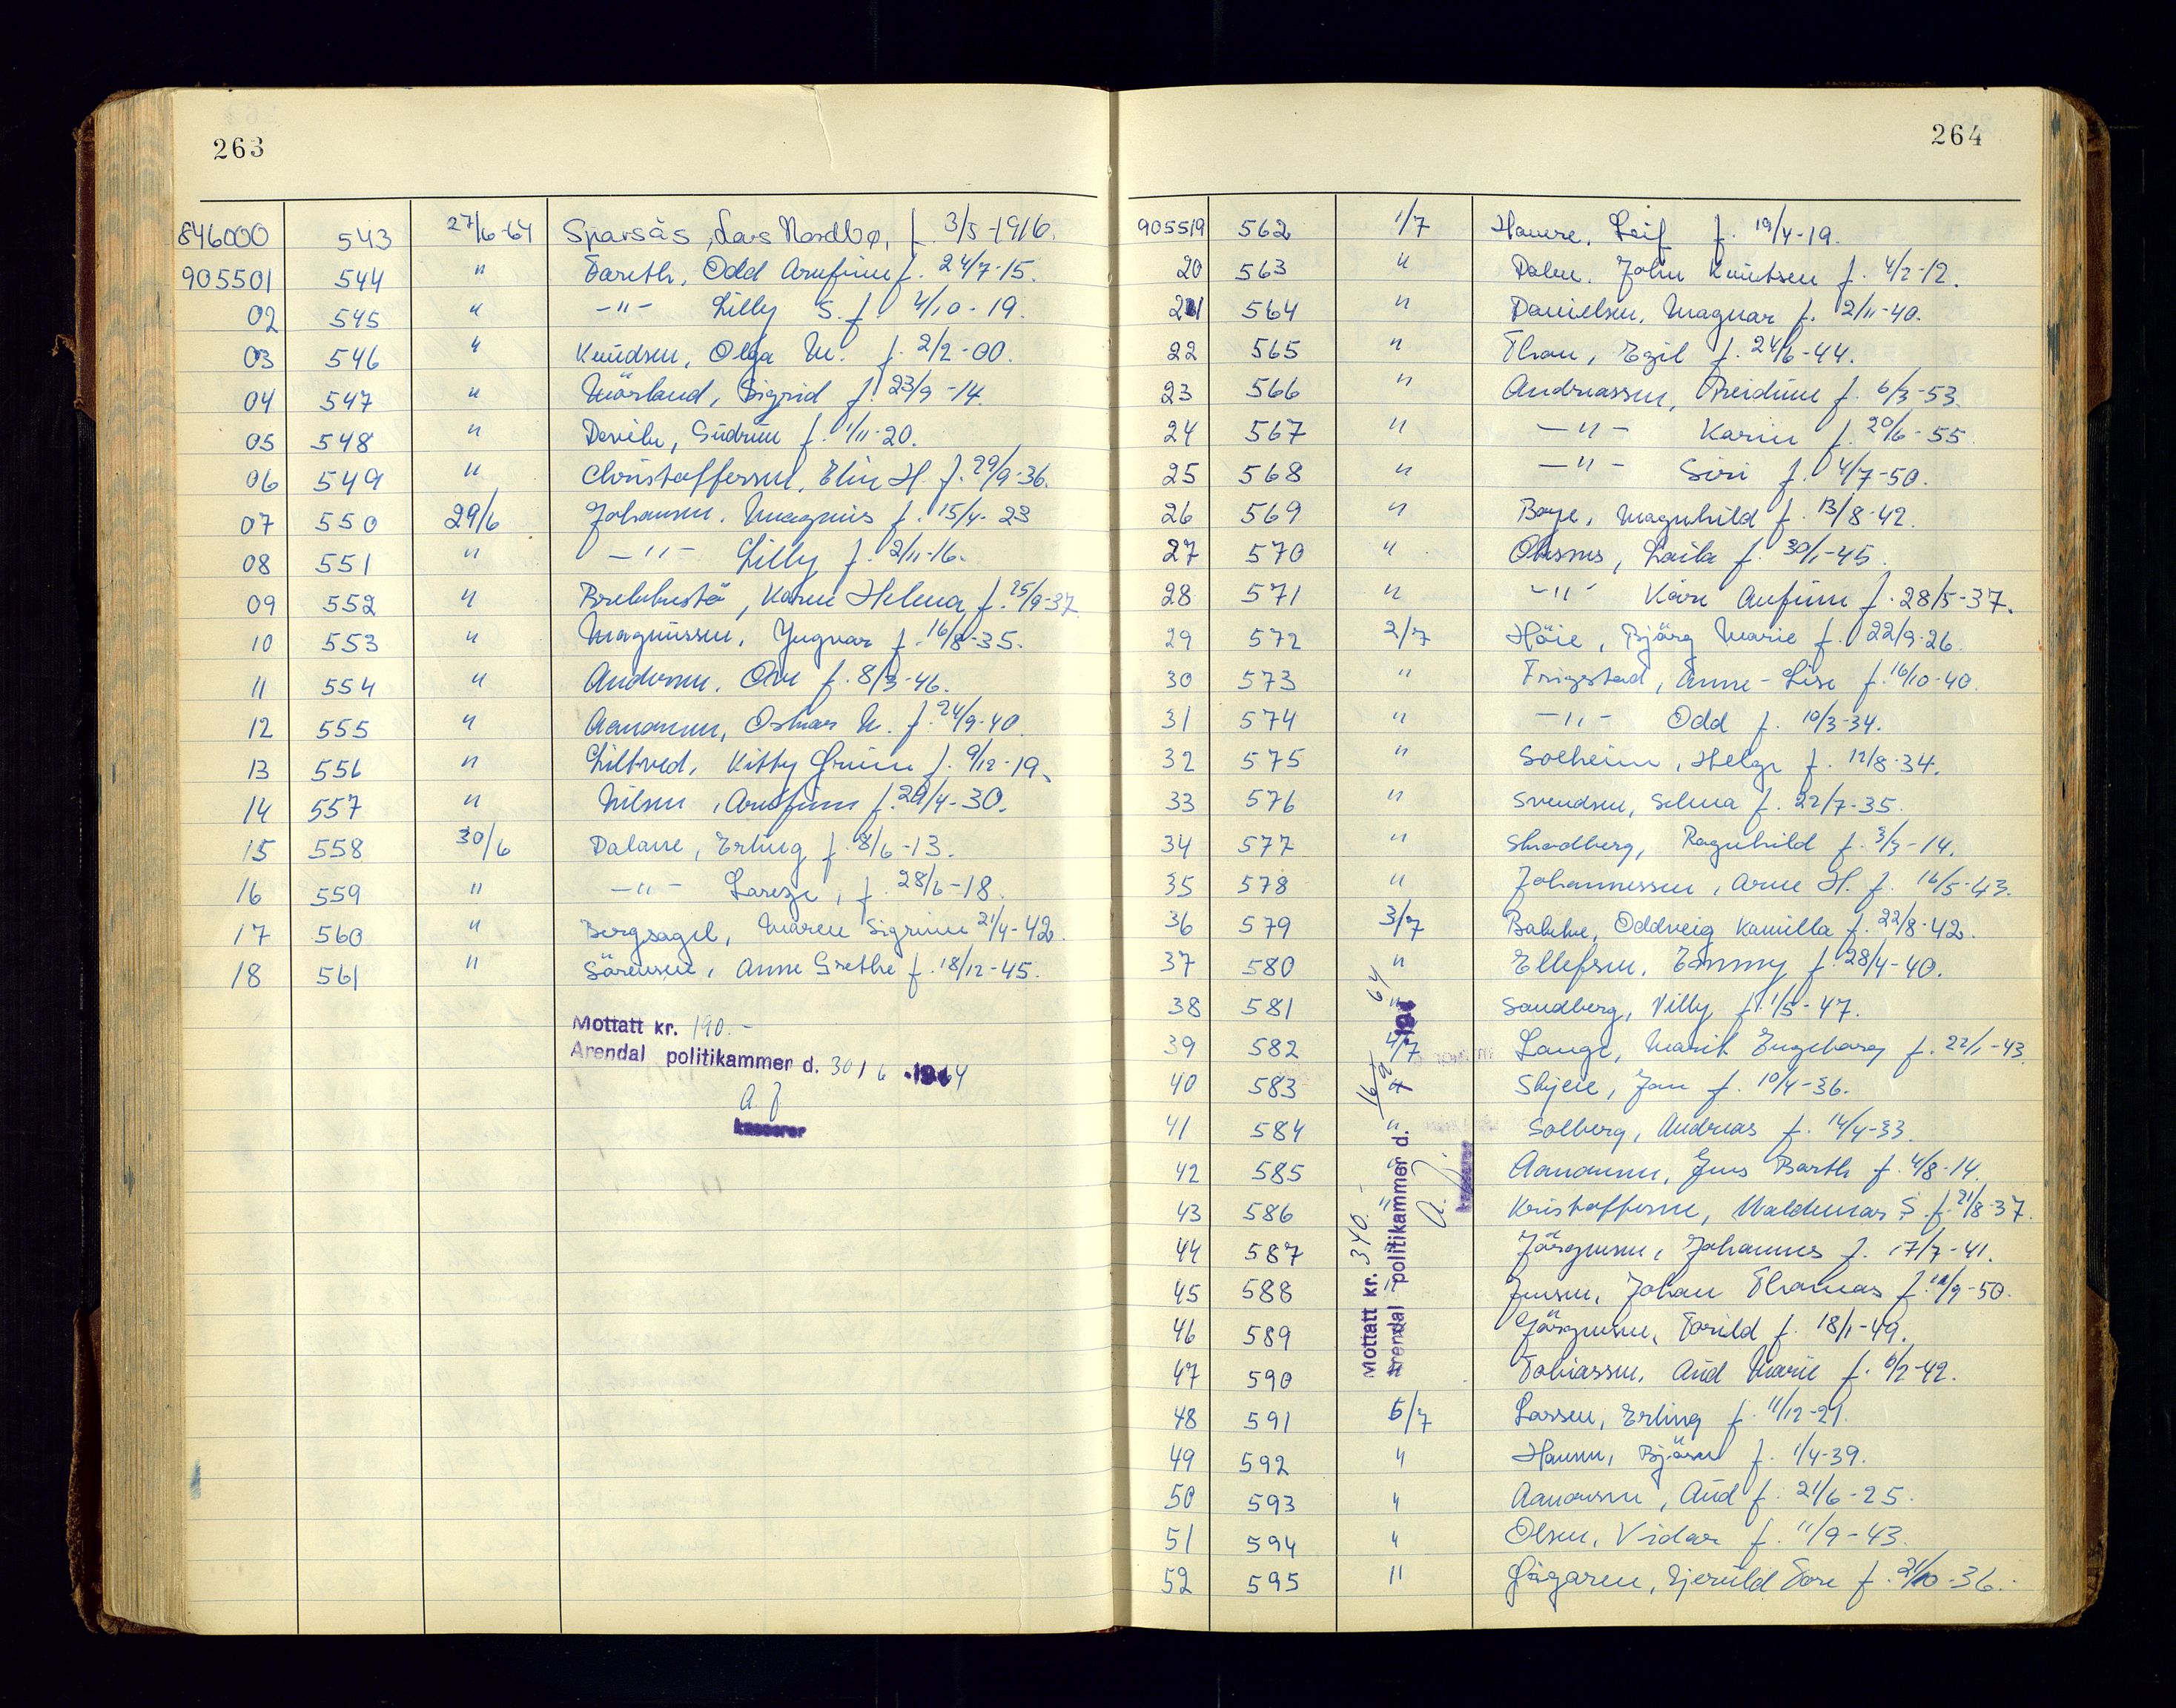 263
846000 543 27/6-64 Sparsås, Lars Nordbø, f. 3/5-1916.
905501 544 " Tareth, Odd Arnfinn f. 24/7-15.
02 545 " -"- Lilly S. f. 4/10-19.
03 546 " Knudsen, Olga M. f. 2/2-00.
04 547 " Mörland, Sigrid f. 23/9-14.
05 548 " Gudrun f. 1/11-20.
06 549 " Christoffersen, Elin H. f. 29/9-36.
07 550 29/6 Johansen, Magnus f. 15/4-23
08 551 " -"- Lilly f. 2/11-16.
09 552 " Karen Helena f. 25/9-37
10 553 " Magnussen, Yngvar f. 16/8-35.
11 554 " Andersen, Ove f. 8/3-46.
12 555 " Aanonsen, Osmar N. f. 24/9-40.
13 556 " Liltved, Kitty Gruin f. 9/12-19.
14 557 " Nilsen, Arnfinn f. 29/4-30.
15 558 30/6 Dalane, Erling f. 8/6-13.
16 559 " -"- f. 28/6-18.
17 560 " Bergsagel, Maren Sigrunn 21/4-42.
18 561 " Sörensen, Anne Grethe f. 18/12-45.
Mottatt kr. 190.-
Arendal politikammer d. 30/6 -1964
A. J
kasserer
264
905519 562 1/7 Haure, Leif f. 19/4-19.
20 563 " Dalen, John Knutsen f. 4/2-12.
21 564 " Danielsen, Magnar f. 2/11-40.
22 565 " Thon, Egil f. 24/6-44.
23 566 " Andreassen, Reidunn f. 6/3-53.
24 567 " -"- Karin f. 20/6-55.
25 568 " -"- Siri f. 4/7-50.
26 569 " Boye, Magnhild f. 13/8-42.
27 570 " Olusnes, Laila f. 30/1-45.
28 571 " -"- Kåre Anfinn f. 28/5-37.
29 572 2/7 Höie, Bjärg Marie f. 22/9-26.
30 573 " Frigstad, Anne-Lise f. 16/10-40.
31 574 " -"- Odd f. 10/3-34.
32 575 " Solheim, Helge f. 12/8-34.
33 576 " Svendsen, Selma f. 22/7-35.
34 577 " Strodberg, Ragnhild f. 3/3-14.
35 578 " Johannessen, Arne H. f. 16/5-43.
36 579 3/7 Bakke, Oddveig Kamilla f. 22/8-42.
37 580 " Ellefsen, Tommy f. 28/4-40.
38 581 " Sandberg, Villy f. 1/5-47.
39 582 4/7 Lange, Marit Engeborg f. 22/1-43.
40 583 " Skjeie, Jan f. 10/4-36.
41 584 " Solberg, Andreas f. 14/4-33.
42 585 " Aanonsen, Jens Barth f. 4/8-14.
43 586 " Kristoffersen, Waldemar S. f. 21/8-37.
44 587 Jörgensen, Johannes f. 17/7-41.
45 588 " Jensen, Johan Thomas f. /9-50.
46 589 Jörgensen, Torild f. 18/1-49.
47 590 " Tobiassen, Aud Marie f. 6/2-42.
48 591 5/7 Larsen, Erling f. 11/12-21.
49 592 " Hansen, Björn f. 1/4-39.
50 593 " Aanonsen, Aud f. 21/6-25.
51 594 " Olsen, Vidar f. 11/9-43.
52 595 " Gjeruld Tore f. 21/10-36.
Mottatt kr. 340.-
Arendal politikammer d. 16/7 64
A. J.
kasserer